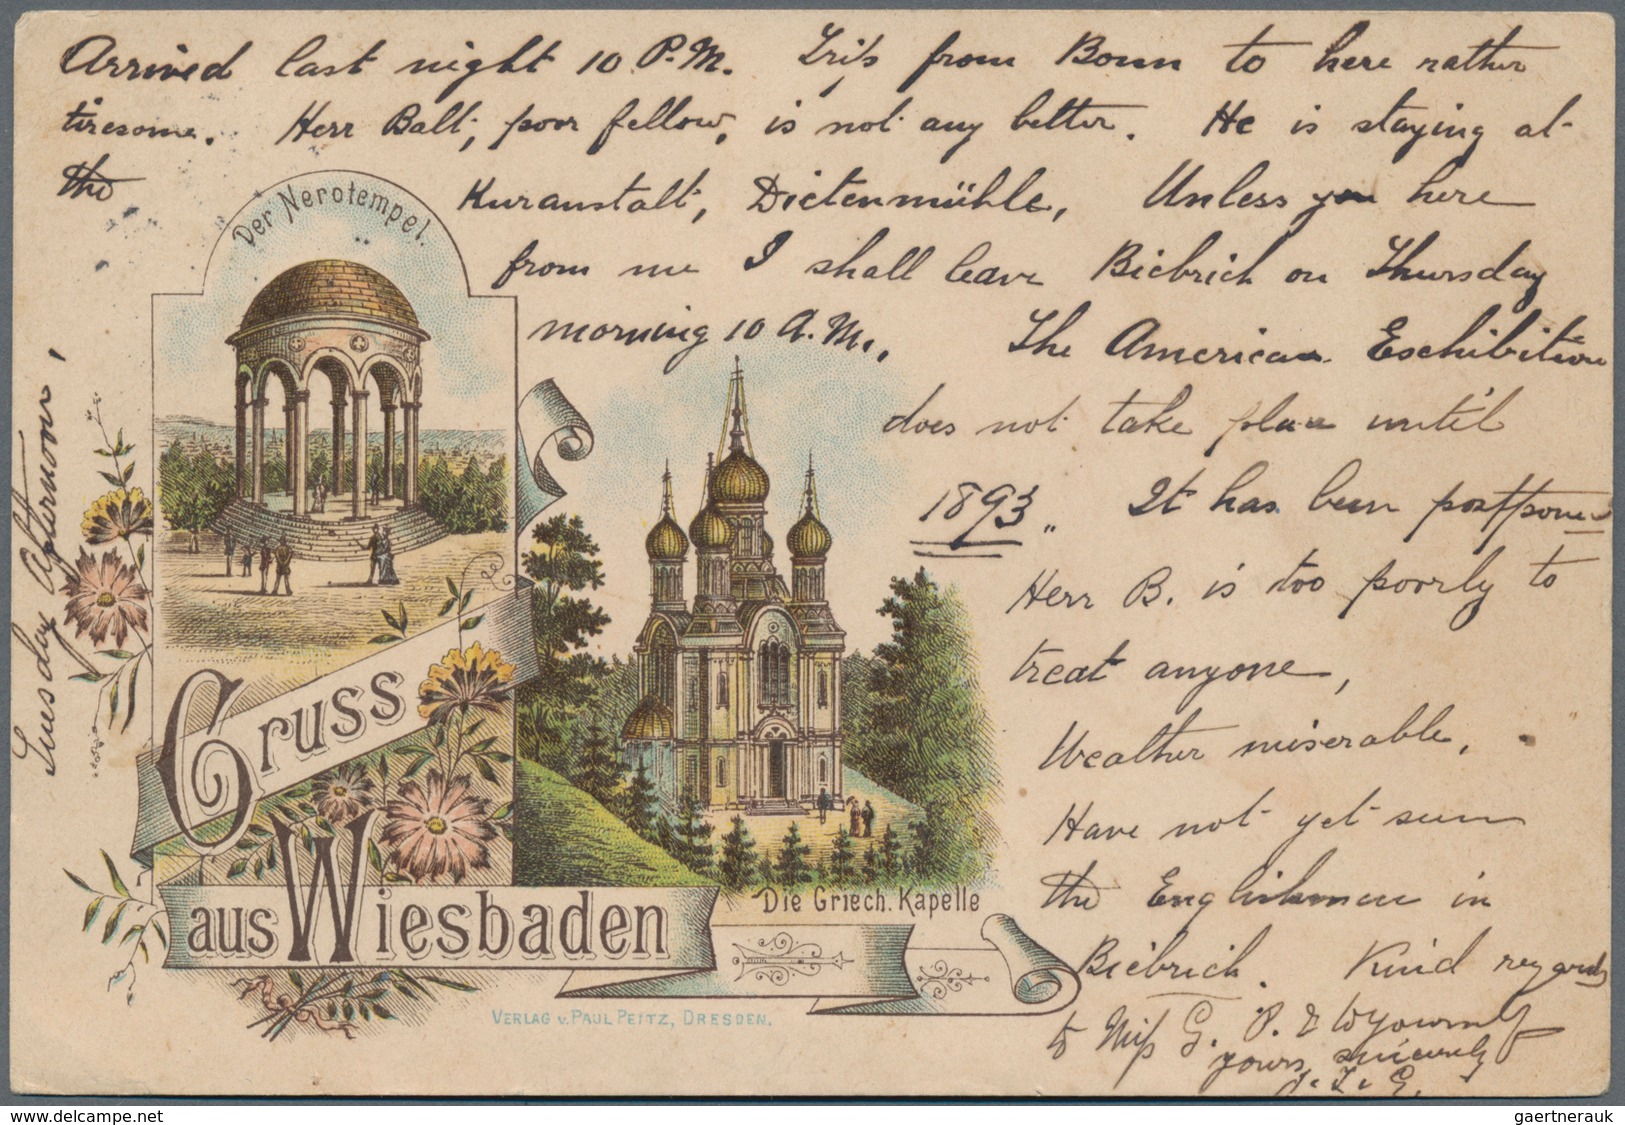 Arrived last night 10 P.M. Trip from Bonn to here rather
tiresome. Herr Balt, poor fellow, is not any better. He is staying at
the Kuranstalt, Dietenmühle, Unless you here
from me I shall leave Biebrich on Thursday
morning 10 A.M.,
The American Eschibition
does not take place until
1893. It has been postpone
Herr B. is too poorly to
treat anyone,
Weather miserable.
Have not yet seen
the Englishman in
Biebrich. Kind regards
to Miss G. P. & to yourself
yours sincerely
Tuesday Afternoon,
Der Nerotempel.
Gruss
aus Wiesbaden
Die Griech. Kapelle
VERLAG v. PAUL PEITZ, DRESDEN.
www.delcampe.net
gaertnerauk